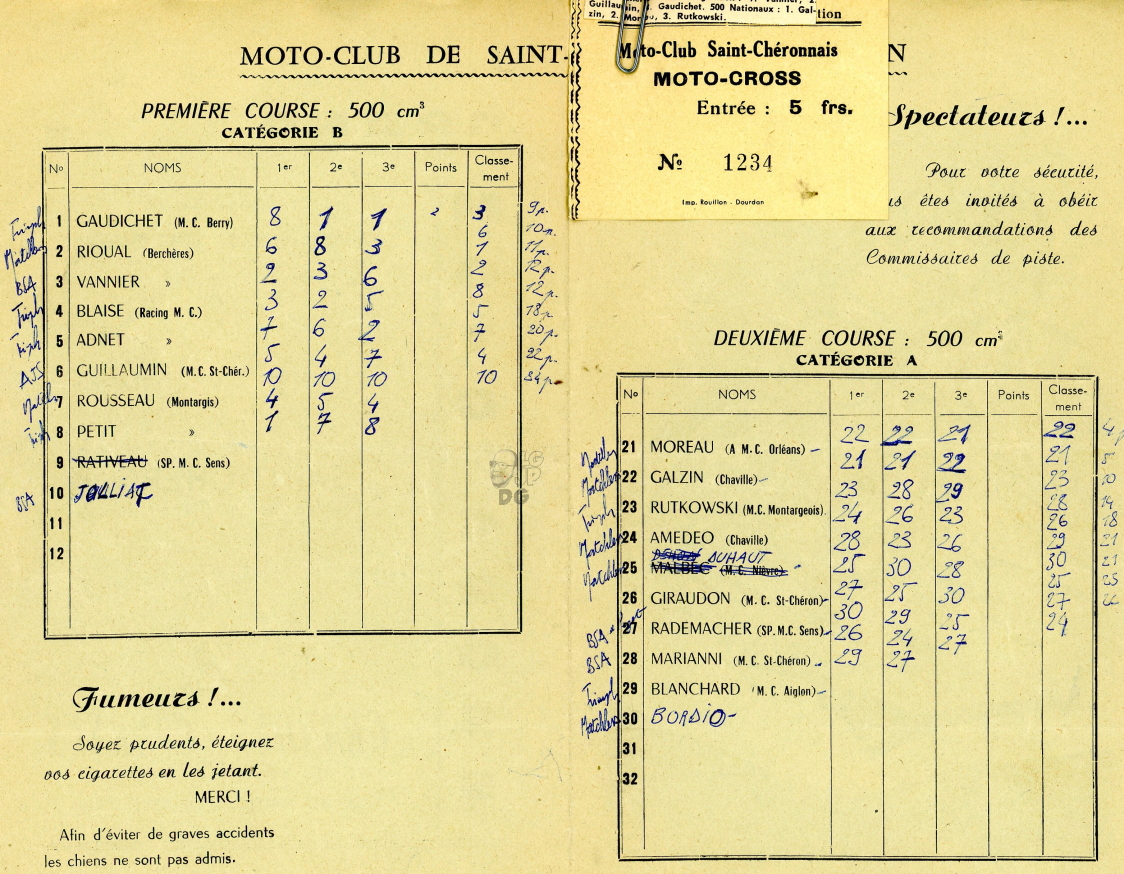 Guillaumin, 3. Gaudichet. 500 Nationaux : 1. Gal-
zin, 2. Moreau, 3. Rutkowski.
tion
Moto-Club Saint-Chéronnais
MOTO-CROSS
Entrée : 5 frs.
No 1234
Imp. Rouillon - Dourdan
MOTO-CLUB DE SAINT-
N
PREMIÈRE COURSE : 500 cm³
CATÉGORIE B
No NOMS 1er 2e 3e Points Classe-
ment
1 GAUDICHET (M. C. Berry) 8 1 1 3 9p.
Triumph
2 RIOUAL (Berchères) 6 8 3 6 10p.
Matchless
3 VANNIER » 2 3 6 1 11p.
BSA
4 BLAISE (Racing M. C.) 3 2 5 2 12p.
Triumph
5 ADNET » 7 6 2 8 12p.
Triumph
6 GUILLAUMIN (M. C. St-Chér.) 5 4 7 5 18p.
AJS
7 ROUSSEAU (Montargis) 10 10 10 7 20p.
Matchless
8 PETIT » 4 5 4 4 22p.
Triumph
9 RATIVEAU (SP. M. C. Sens) 1 7 8 10 34p.
10 JOLLIAT
BSA
11
12
Fumeurs !...
Soyez prudents, éteignez
vos cigarettes en les jetant.
MERCI !
Afin d'éviter de graves accidents
les chiens ne sont pas admis.
Spectateurs !...
Pour votre sécurité,
us êtes invités à obéir
aux recommandations des
Commissaires de piste.
DEUXIÈME COURSE : 500 cm³
CATÉGORIE A
No NOMS 1er 2e 3e Points Classe-
ment
21 MOREAU (A M. C. Orléans) 22 22 21 22 4
Matchless
22 GALZIN (Chaville) 21 21 22 21 5
Matchless
23 RUTKOWSKI (M.C. Montargeois) 23 28 29 23 10
Triumph
24 AMEDEO (Chaville) 24 26 23 28 14
Matchless
DUHAUT
25 MALBEC (M. C. Nièvre) 28 23 26 26 18
Matchless
26 GIRAUDON (M. C. St-Chéron) 25 30 28 29 21
27 RADEMACHER (SP. M.C. Sens) 27 25 30 30 21
BSA
28 MARIANNI (M. C. St-Chéron) 30 29 25 25 25
BSA
29 BLANCHARD (M. C. Aiglon) 26 24 27 27
Triumph
30 BORDIO 29 27 24
Matchless
31
32
DG